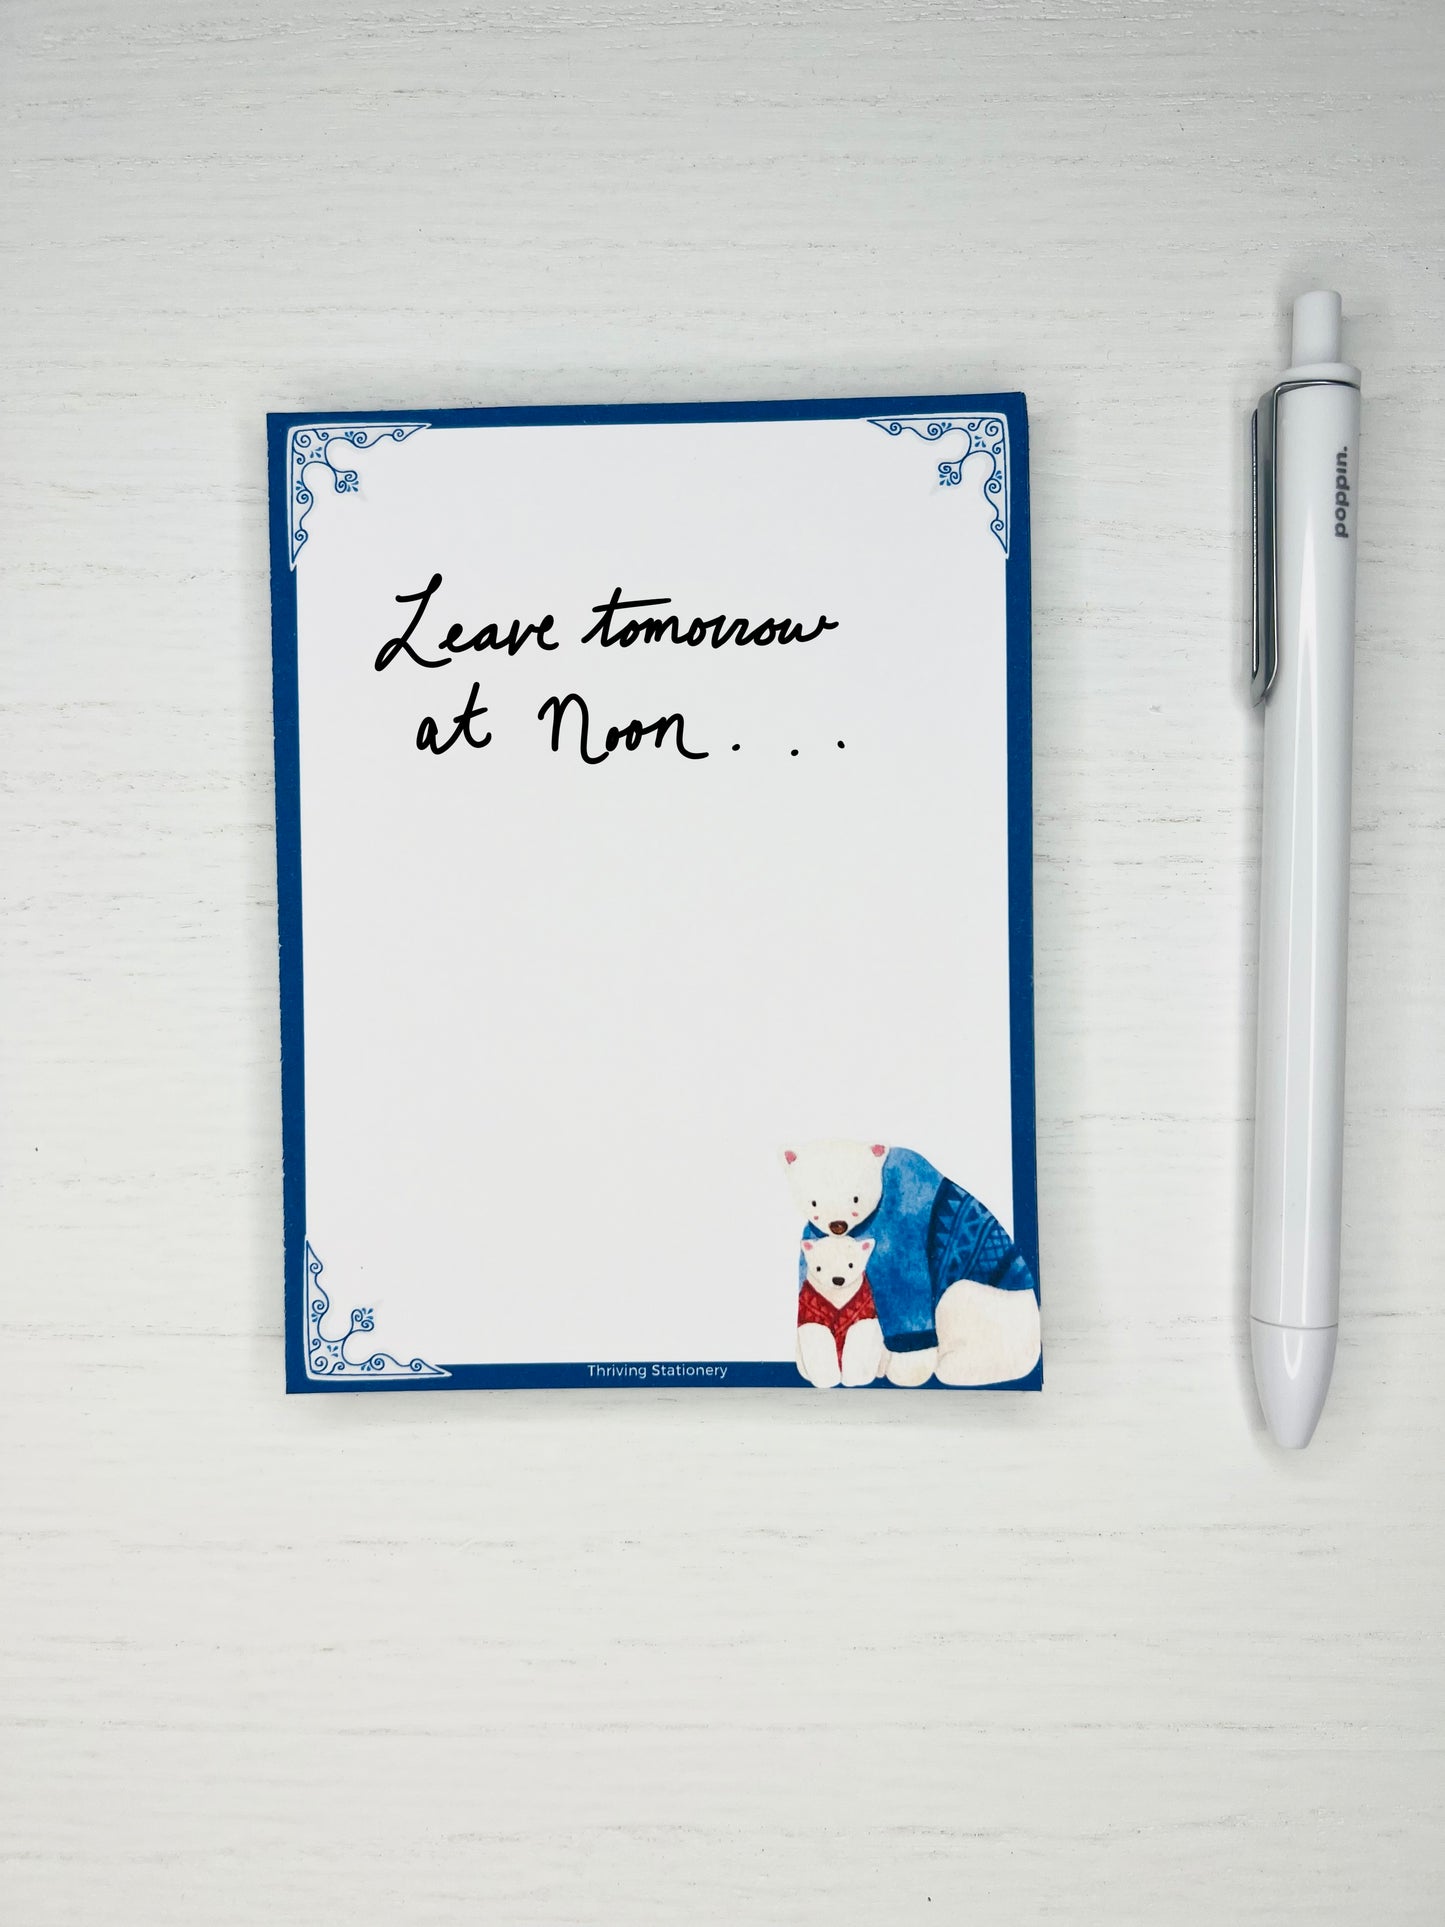 Leave tomorrow
at Noon . . .
Thriving Stationery
poppin.